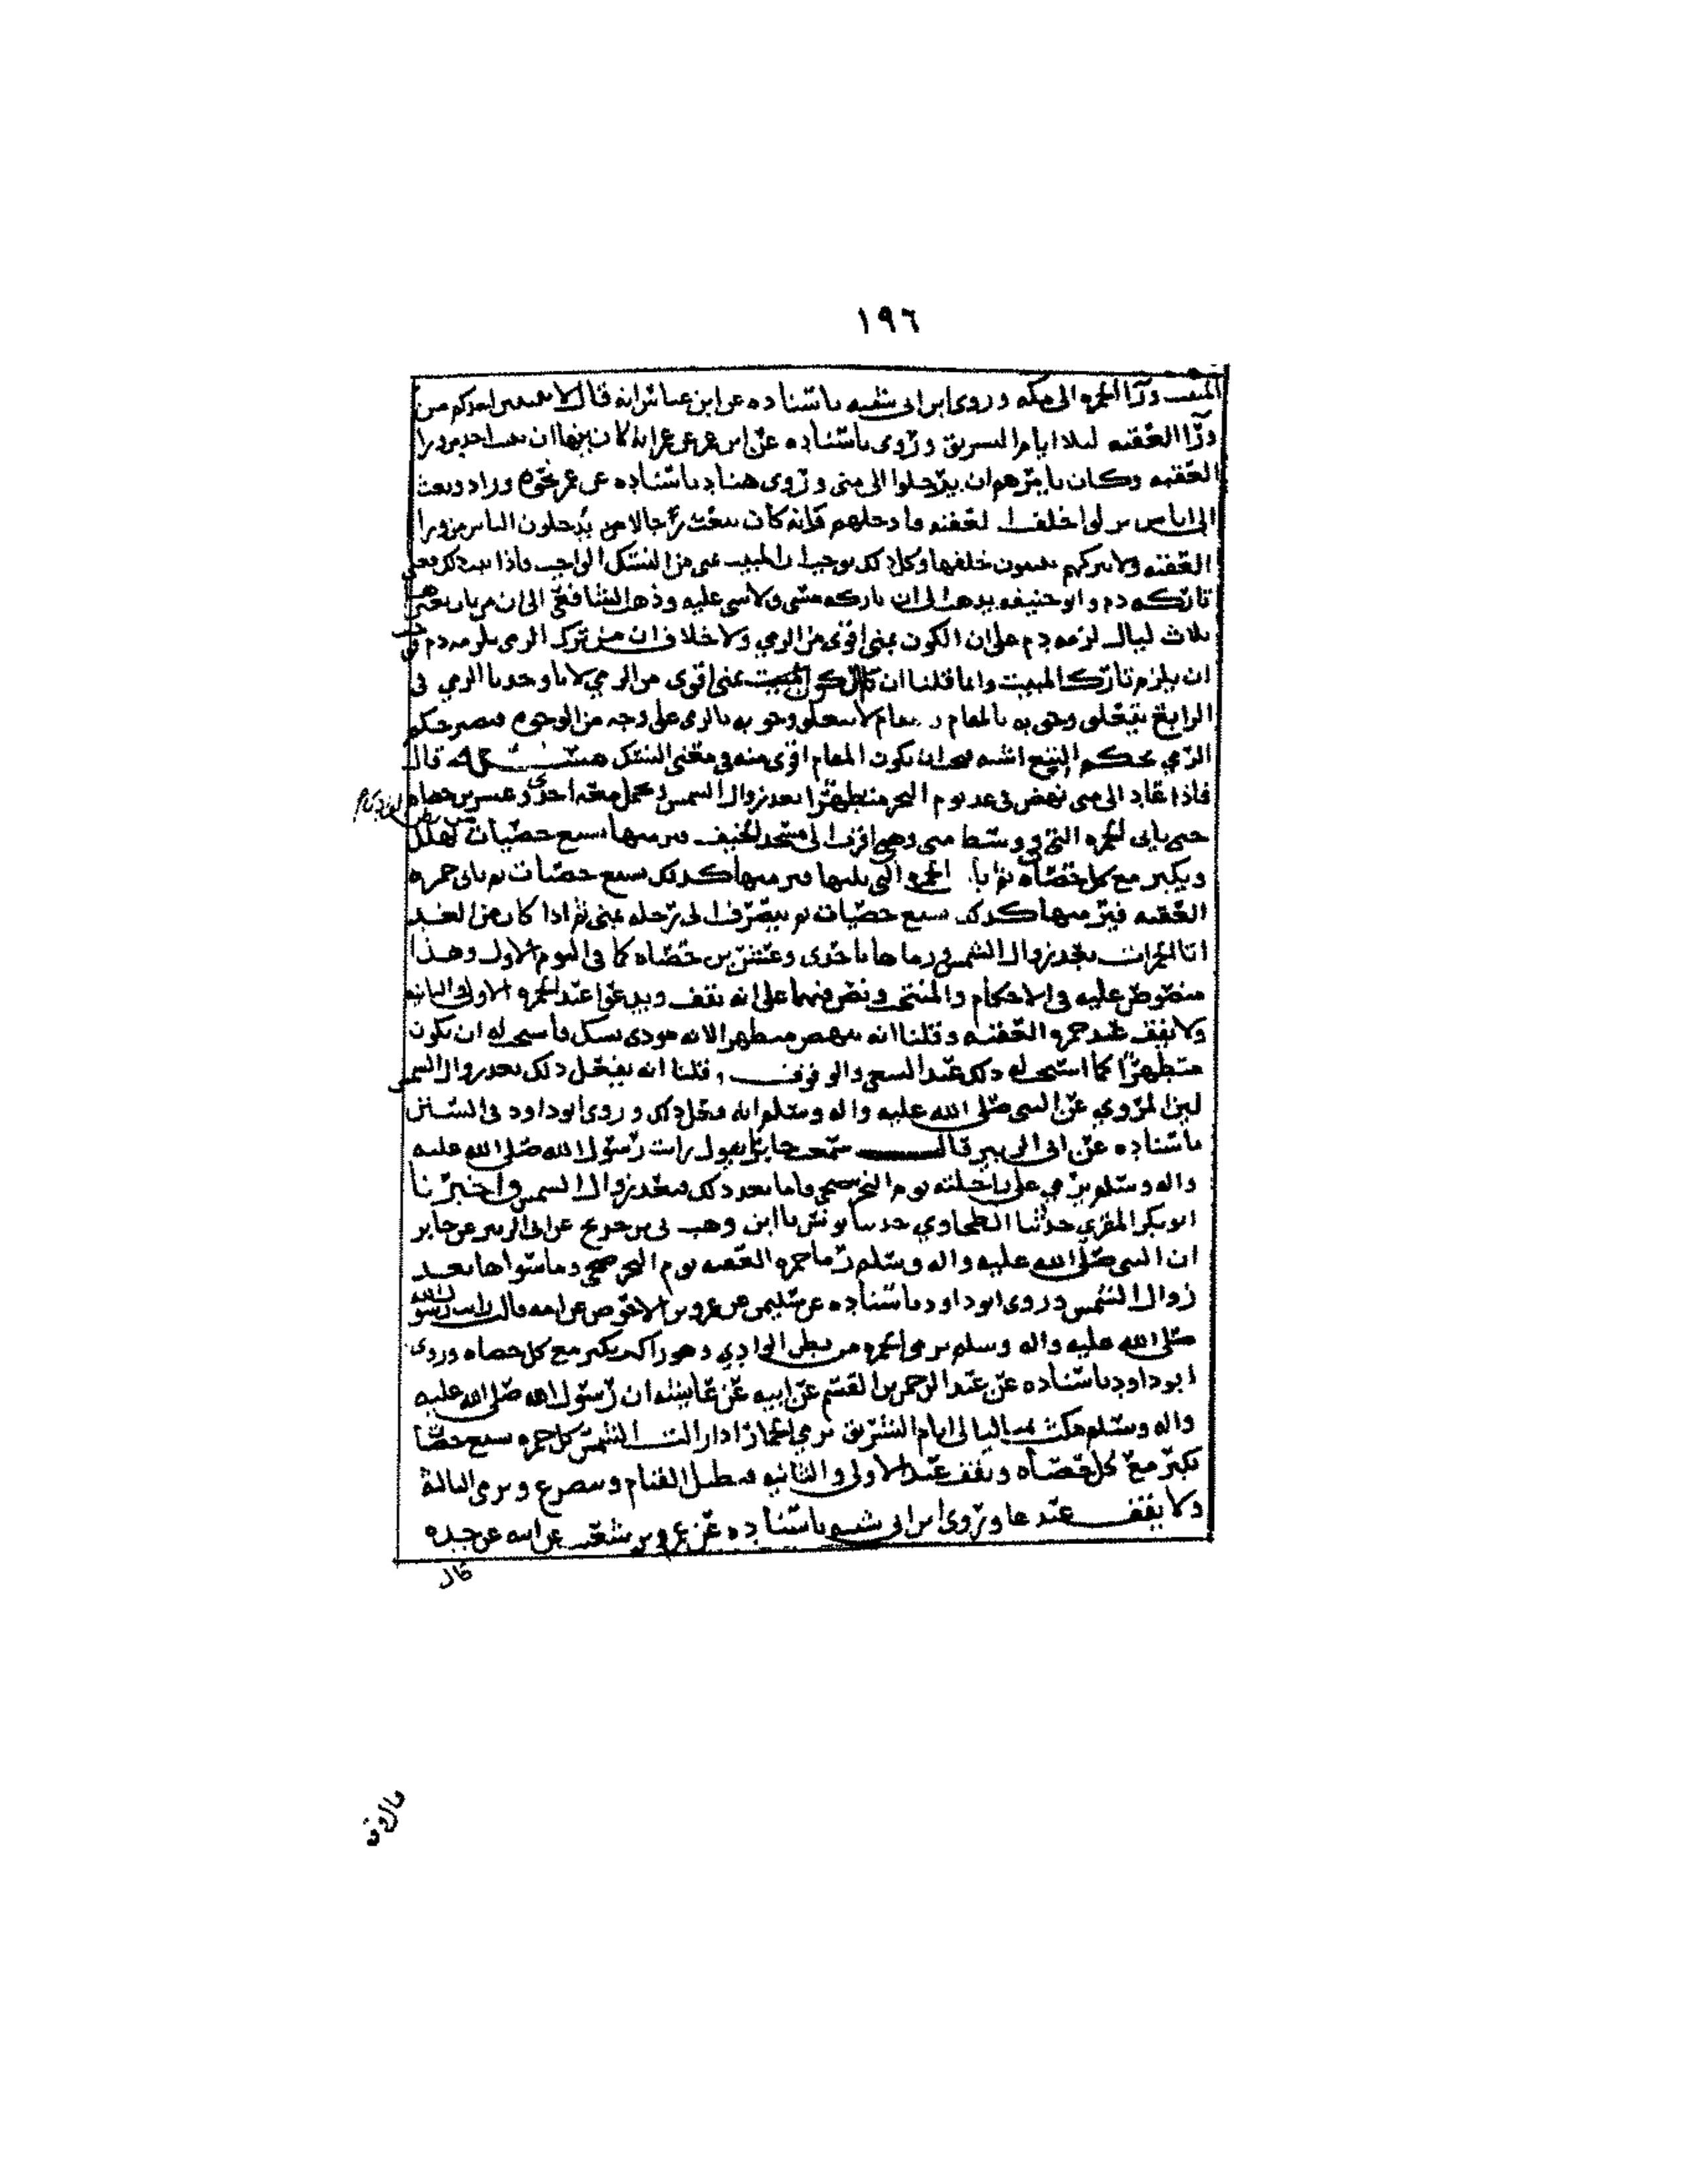 ١٩٦
المبيت ورآ الجمره الى مكه وروى ابن ابى شيبه باسناده عن ابن عباس انه قال لا يبيتن احدكم من
ورآ العقبه ليلا ايام التشريق وروى باسناده عن ابن عمر عن عمر انه كان ينها ان يبيت احد من ورا
العقبه وكان يامرهم ان يدخلوا الى منى وروى هناد باسناده عن عمر نحوه وزاد وبعث
الى اناس نزلوا خلف العقبه فادخلهم فانه كان يبعث رجالا يدخلون الناس من ورا
العقبه ولا يتركهم يبيتون خلفها وكل ذلك يوجب ان المبيت بمنى من النسك الواجب فاذا ثبت ذلك فعلى
تاركه دم وابو حنيفه يذهب الى ان تاركه مسى ولا شى عليه وذهب الشافعى الى ان من بات بغير منى
ثلاث ليال لزمه دم على ان الكون بمنى اقوى من الرمي ولا خلاف ان من ترك الرمى يلزمه دم فيجب
ان يلزم تارك المبيت وانما قلنا ان الكون بمنى اقوى من الرمي لانا وجدنا الرمي فى
الرابع يتعلق وجوبه بالمقام والمقام لا يتعلق وجوبه بالرمى على وجه من الوجوه فصير حكم
الرمي بحكم التبع اشبه فيجب ان يكون المقام اقوى منه فى معنى النسك مسئـــلة قال
فاذا عاد الى منى نهض فى غد يوم النحر متطهرا بعد زوال الشمس وحمل معه احدى وعشرين حصاه
حتى ياتى الجمره التى وسط منى وهى اقرب الى مسجد الخيف فيرميها بسبع حصيات يهلل
ويكبر مع كل حصاه ثم ياتى الجمره التى تليها فيرميها كذلك بسبع حصيات ثم ياتى جمره
العقبه فيرميها كذلك بسبع حصيات ثم ينصرف الى رحله بمنى ثم اذا كان من الغد
اتا الجمرات بعد زوال الشمس ورماها باحدى وعشرين حصاه كما فى اليوم الاول وهذا
منصوص عليه فى الاحكام والمنتخب ونص فيهما على انه يقف ويدعوا عند الجمره الاولى والثانيه
ولا يقف عند جمره العقبه وقلنا انه ينهض متطهرا لانه مودى نسك فاستحب له ان يكون
متطهرا كما استحب له ذلك عند السعى والوقوف وقلنا انه يفعل ذلك بعد زوال الشمس
لان المروي عن النبى صلى الله عليه واله وسلم انه فعل ذلك وروى ابو داود فى السنن
باسناده عن ابى الزبير قال سمعت جابرا يقول رايت رسول الله صلى الله عليه
واله وسلم يرمي على راحلته يوم النحر ضحى واما بعد ذلك فبعد زوال الشمس واخبرنا
ابو بكر المقرى حدثنا الطحاوي حدثنا يونس نا ابن وهب نى ابن جريج عن ابى الزبير عن جابر
ان النبى صلى الله عليه واله وسلم رما جمره العقبه يوم النحر ضحى وما سواها بعد
زوال الشمس وروى ابو داود باسناده عن سليمن عن عمرو بن الاحوص عن امه قالت رايت رسول الله
صلى الله عليه واله وسلم يرمى الجمره من بطن الوادي وهو راكب يكبر مع كل حصاه وروى
ابو داود باسناده عن عبد الرحمن بن القسم عن ابيه عن عايشه ان رسول الله صلى الله عليه
واله وسلم مكث بمنى ليالى ايام التشريق يرمي الجمار اذا زالت الشمس كل جمره بسبع حصيات
يكبر مع كل حصاه ويقف عند الاولى والثانيه فيطيل القيام ويتضرع ويرمى الثالثه
ولا يقف عندها وروى ابن ابى شيبه باسناده عن عمرو بن شعيب عن ابيه عن جده
قال